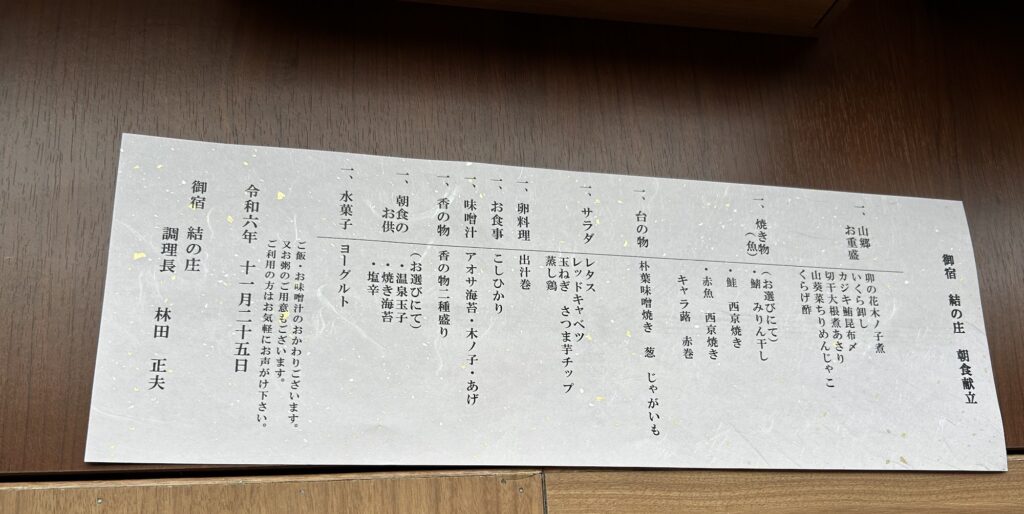 御宿 結の庄 朝食献立
一、山郷お重盛
卯の花木ノ子煮
いくら卸し
カジキ鮪昆布〆
切干大根煮あさり
山葵菜ちりめんじゃこ
くらげ酢
一、焼き物(魚)
(お選びにて)
・鯖 みりん干し
・鮭 西京焼き
・赤魚 西京焼き
キャラ蕗 赤巻
一、台の物 朴葉味噌焼き 葱 じゃがいも
一、サラダ
レタス
レッドキャベツ
玉ねぎ さつま芋チップ
蒸し鶏
一、卵料理 出汁巻
一、お食事 こしひかり
一、味噌汁 アオサ海苔・木ノ子・あげ
一、香の物 香の物二種盛り
一、朝食のお供
(お選びにて)
・温泉玉子
・焼き海苔
・塩辛
一、水菓子 ヨーグルト
ご飯・お味噌汁のおかわりございます。
又お粥のご用意もございます。
ご利用の方はお気軽にお声がけ下さい。
令和六年 十一月二十五日
御宿 結の庄
調理長 林田 正夫